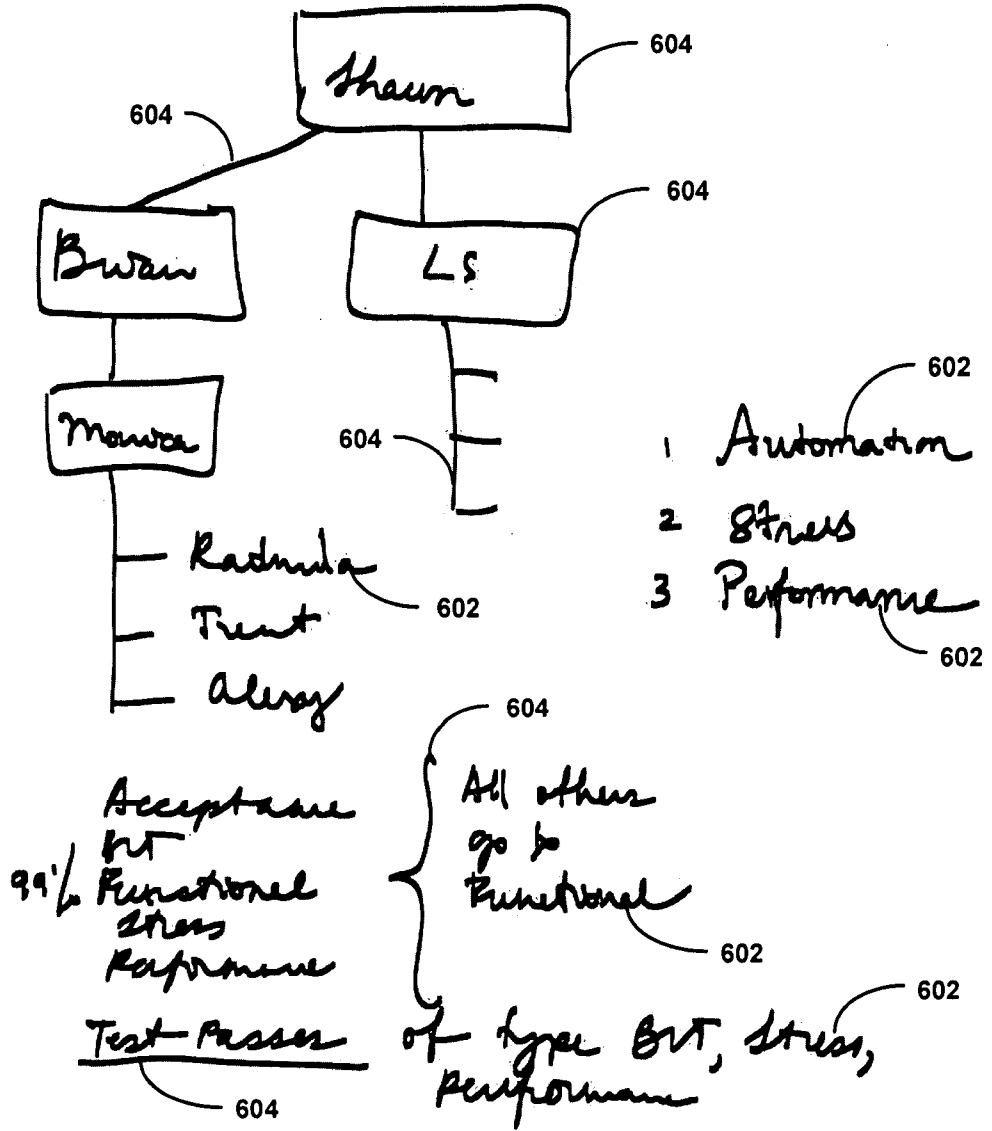 Shaun
604
604
604
Bwan
LS
602
604
1 Automation
2 Stress
3 Performance
Radmila
602
Trent
602
604
Acceptance
BVT
99% Functional
Stress
Performance
All others
go to
Functional
602
602
Test Passes of type BVT, Stress,
Performance
604